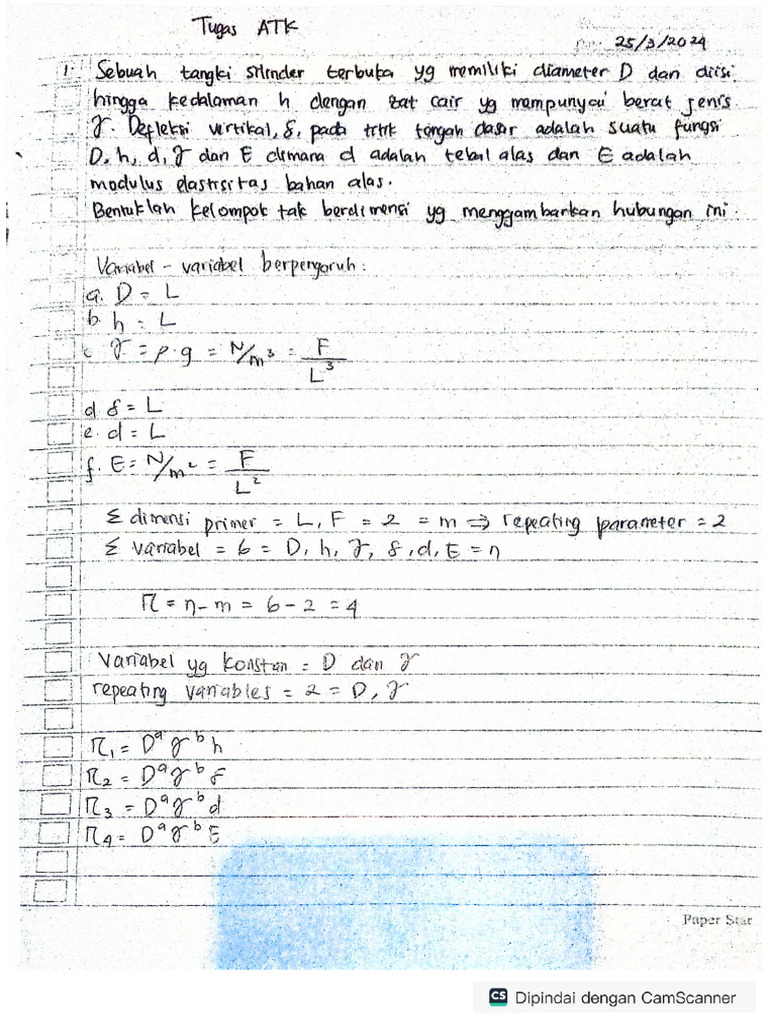 Tugas ATK
25/3/2024
1. Sebuah tangki silinder terbuka yg memiliki diameter D dan diisi
hingga kedalaman h dengan zat cair yg mempunyai berat jenis
γ. Defleksi vertikal, δ, pada titik tengah dasar adalah suatu fungsi
D, h, d, γ dan E dimana d adalah tebal alas dan E adalah
modulus elastisitas bahan alas.
Bentuklah kelompok tak berdimensi yg menggambarkan hubungan ini.
Variabel - variabel berpengaruh :
a. D = L
b. h = L
c. γ = ρ.g = N/m³ = F/L³
d. δ = L
e. d = L
f. E = N/m² = F/L²
Σ dimensi primer = L, F = 2 = m ⇒ repeating parameter = 2
Σ variabel = 6 = D, h, γ, δ, d, E = n
π = n - m = 6 - 2 = 4
Variabel yg konstan = D dan γ
repeating variables = 2 = D, γ
π₁ = Dᵃ γᵇ h
π₂ = Dᵃ γᵇ δ
π₃ = Dᵃ γᵇ d
π₄ = Dᵃ γᵇ E
Paper Star
CS Dipindai dengan CamScanner